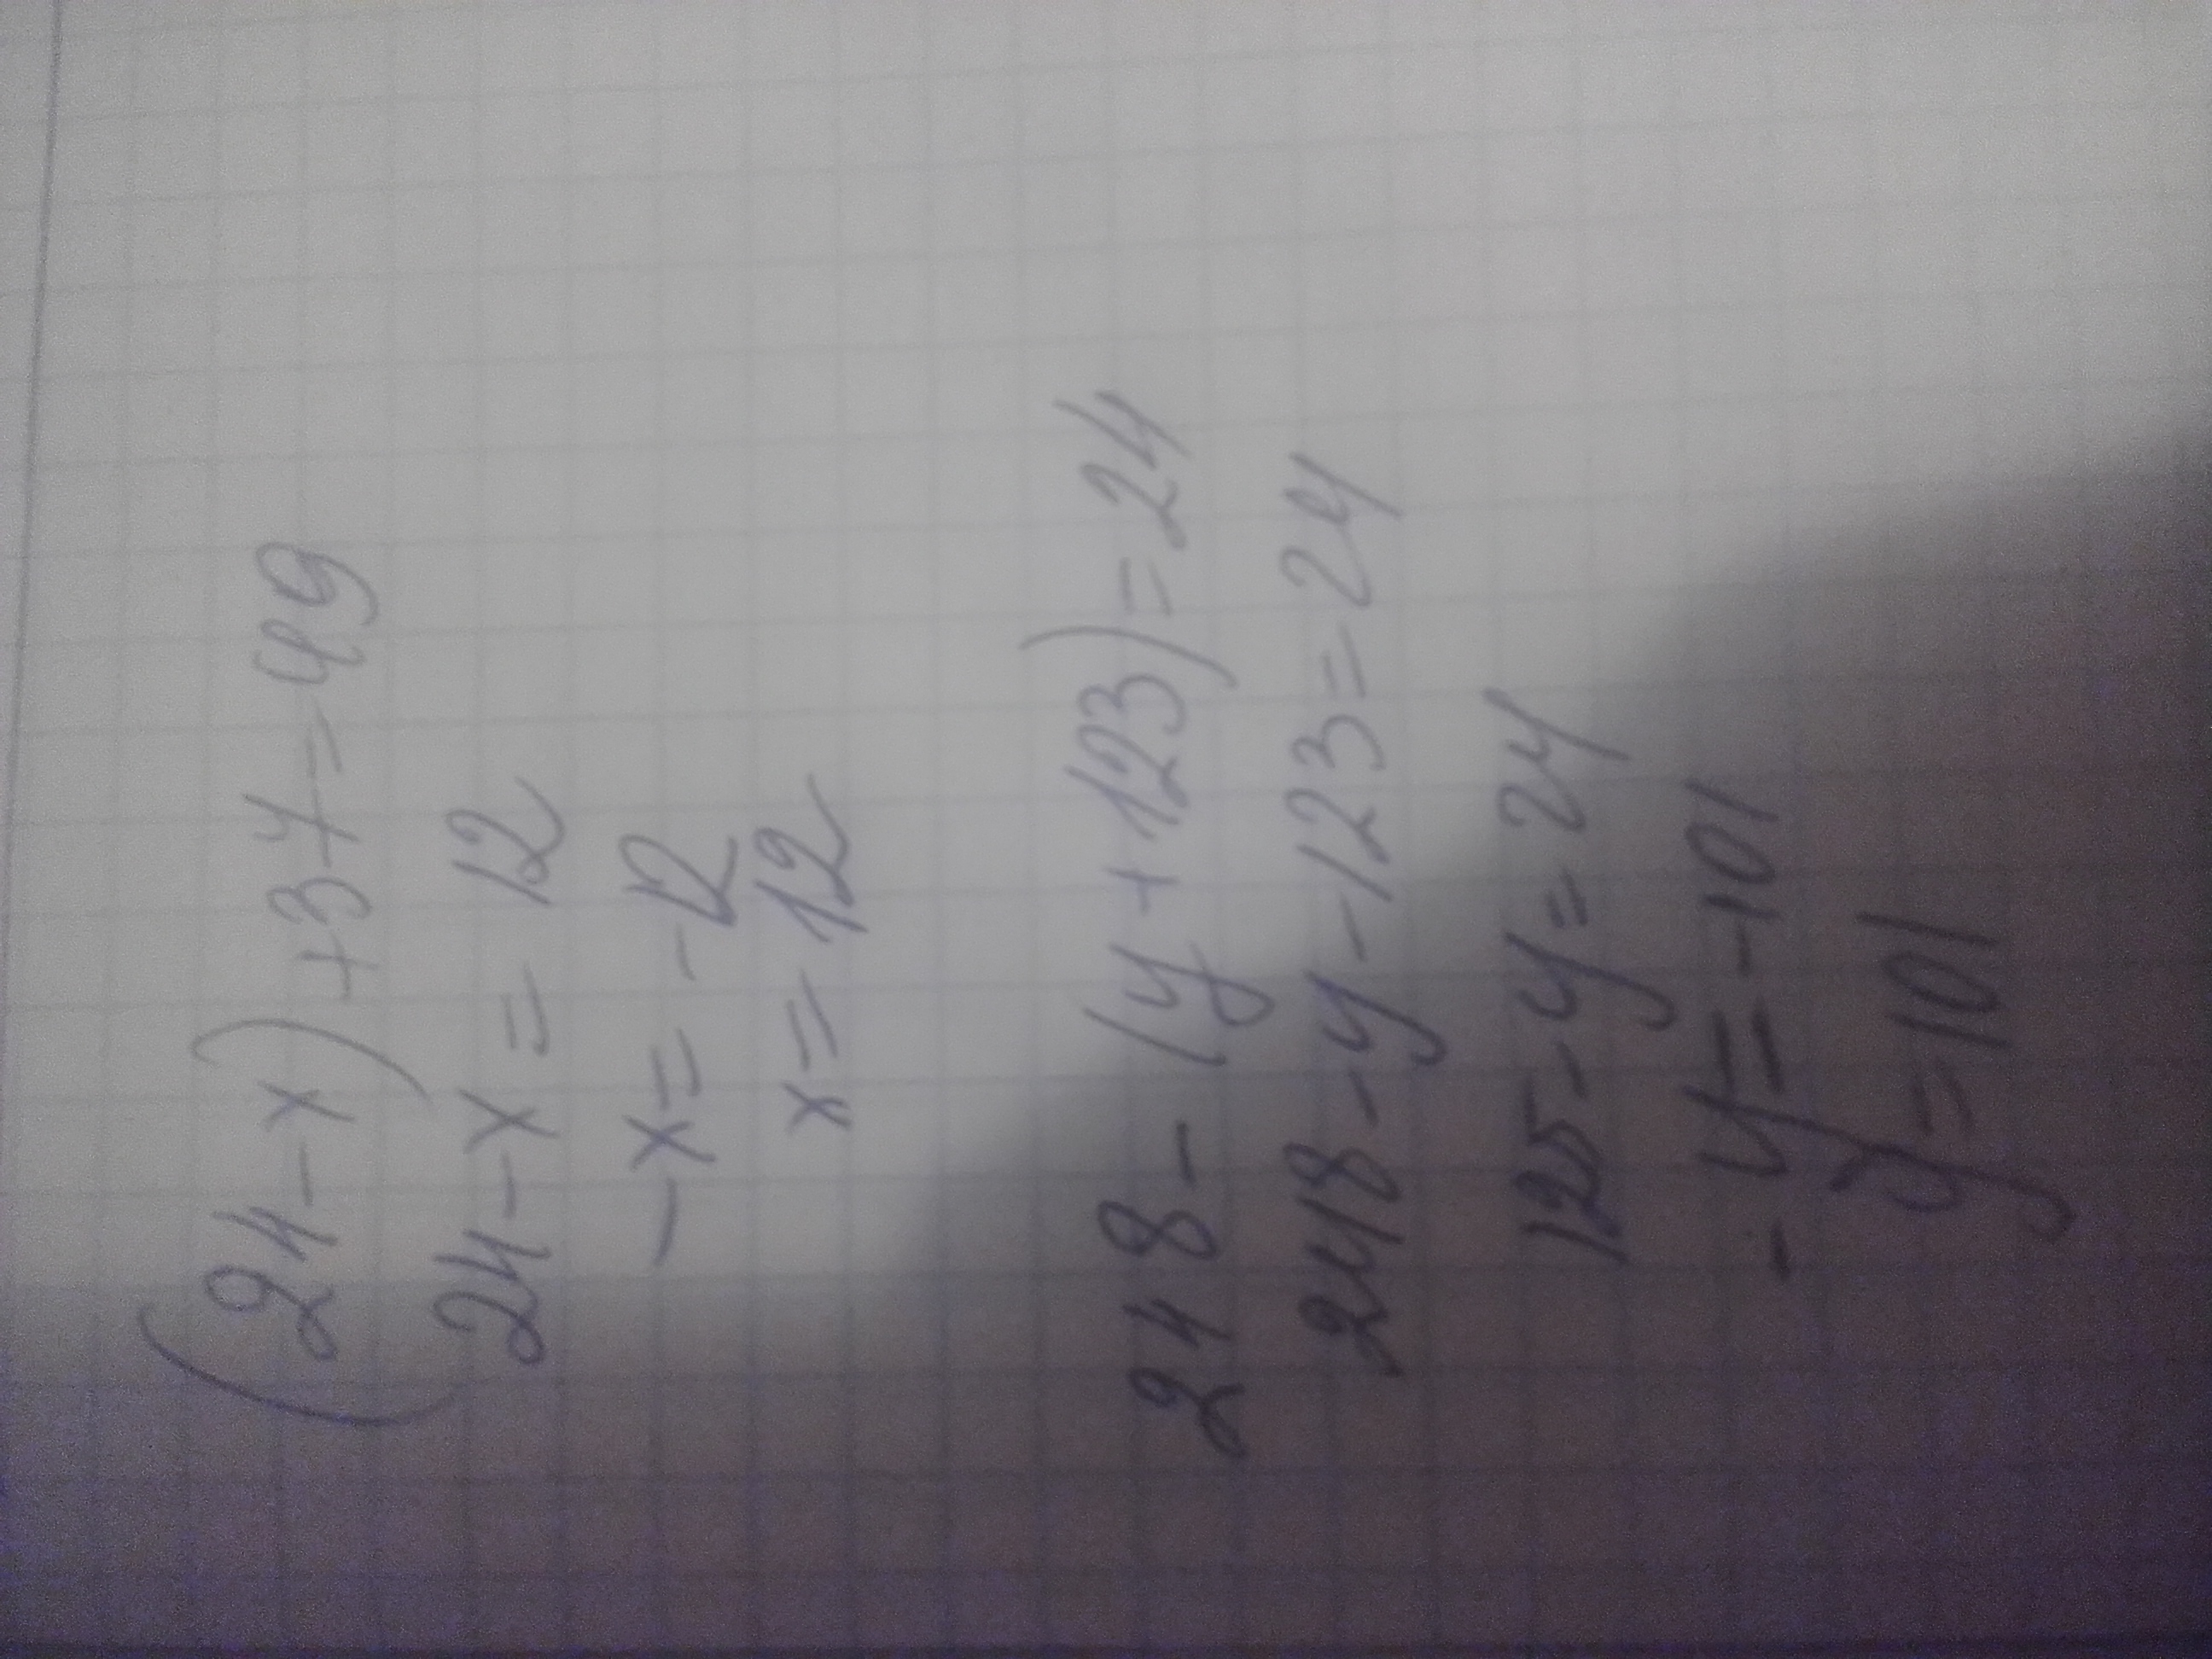 (24-x)+37=49
24-x=12
-x=-12
x=12
248-(y+123)=24
248-y-123=24
125-y=24
-y=-101
y=101